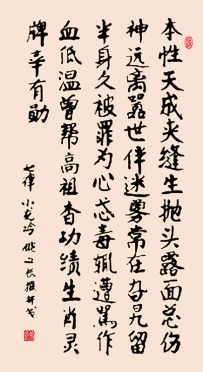 本性天成夹缝生抛头露面总伤
神远离嚣世伴迷雾常在旮旯留
半身久被罪为心毒辄遭骂作
血低温曾帮高祖功绩生肖灵
牌幸有勋
七律 小龙吟 姚文长撰并书